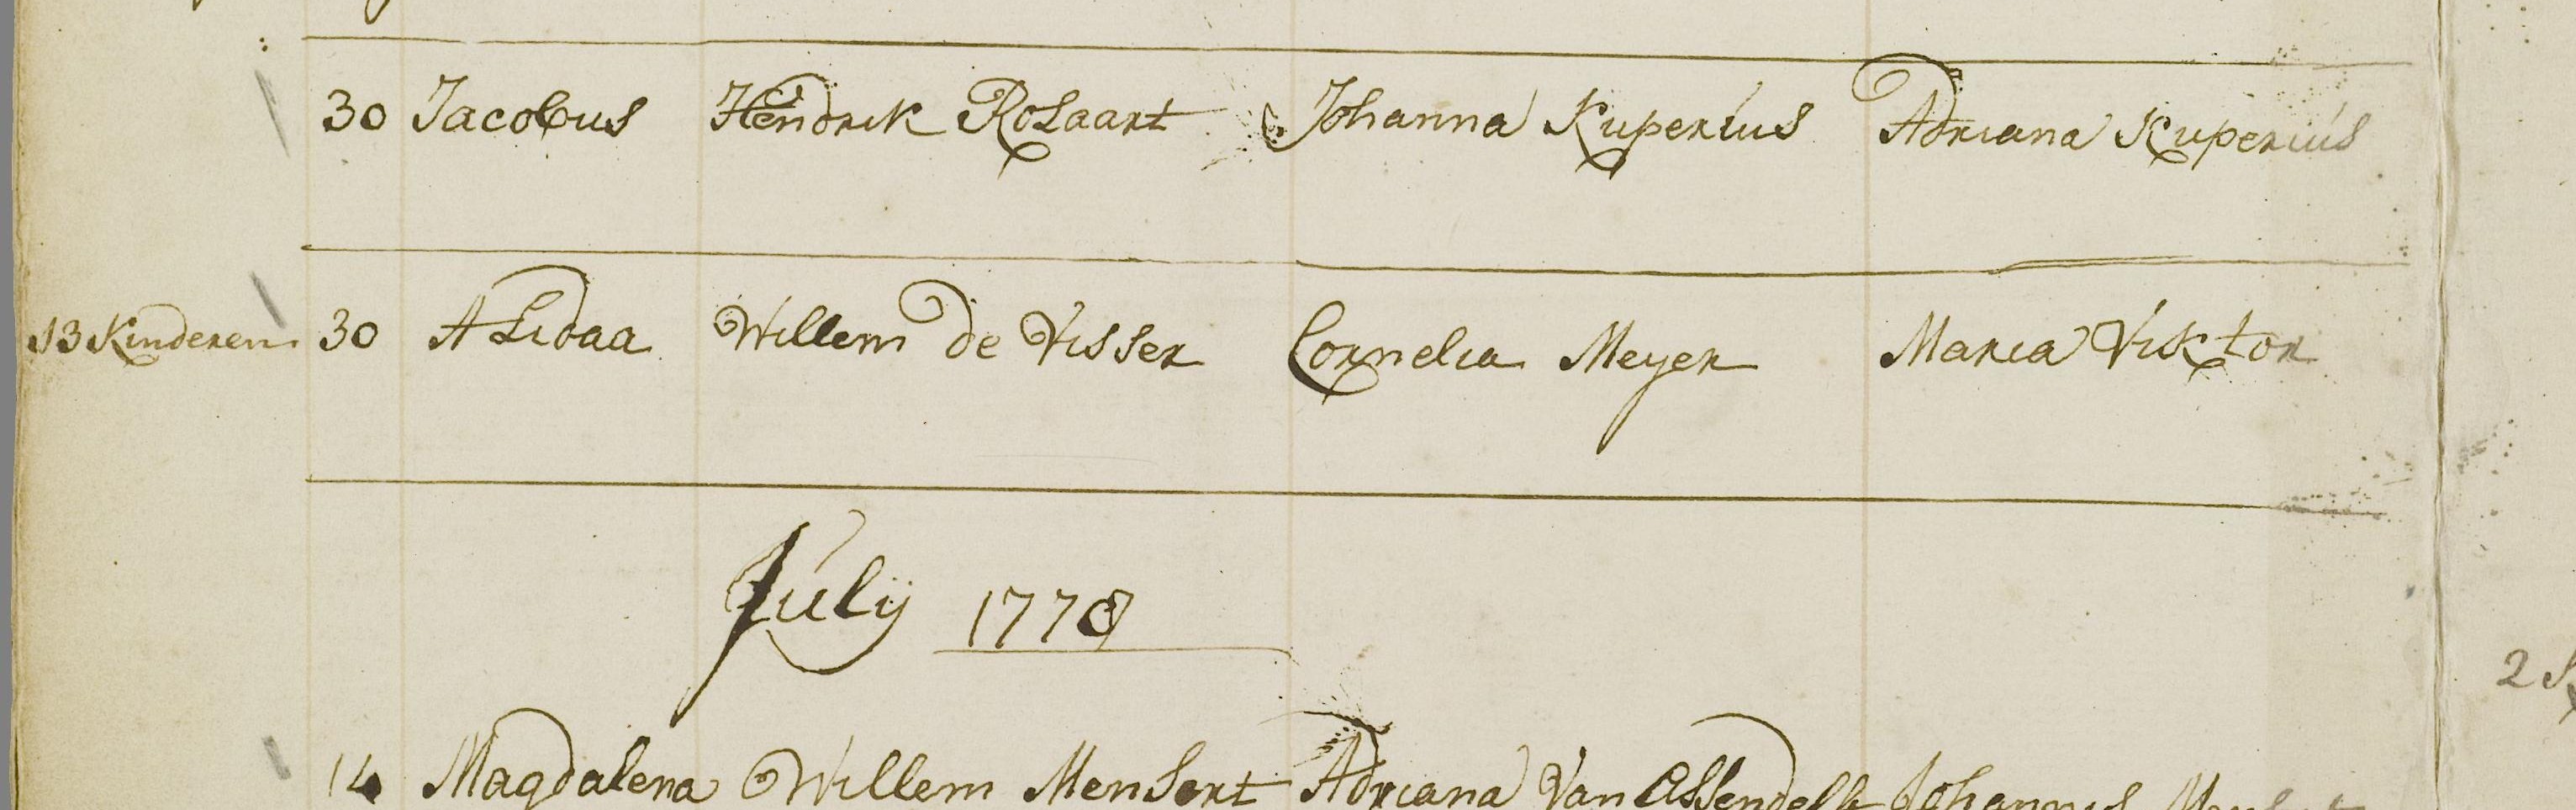 30 Jacobus Hendrik Rosaart Johanna Kuperius Adriana Kuperius
13 Kinderen 30 ALidaa Willem de Visser Cornelia Meyer Maria Viktor
Julij 1778
14 Magdalena Willem Mensert Adriana Van Assendelft Johannes
2